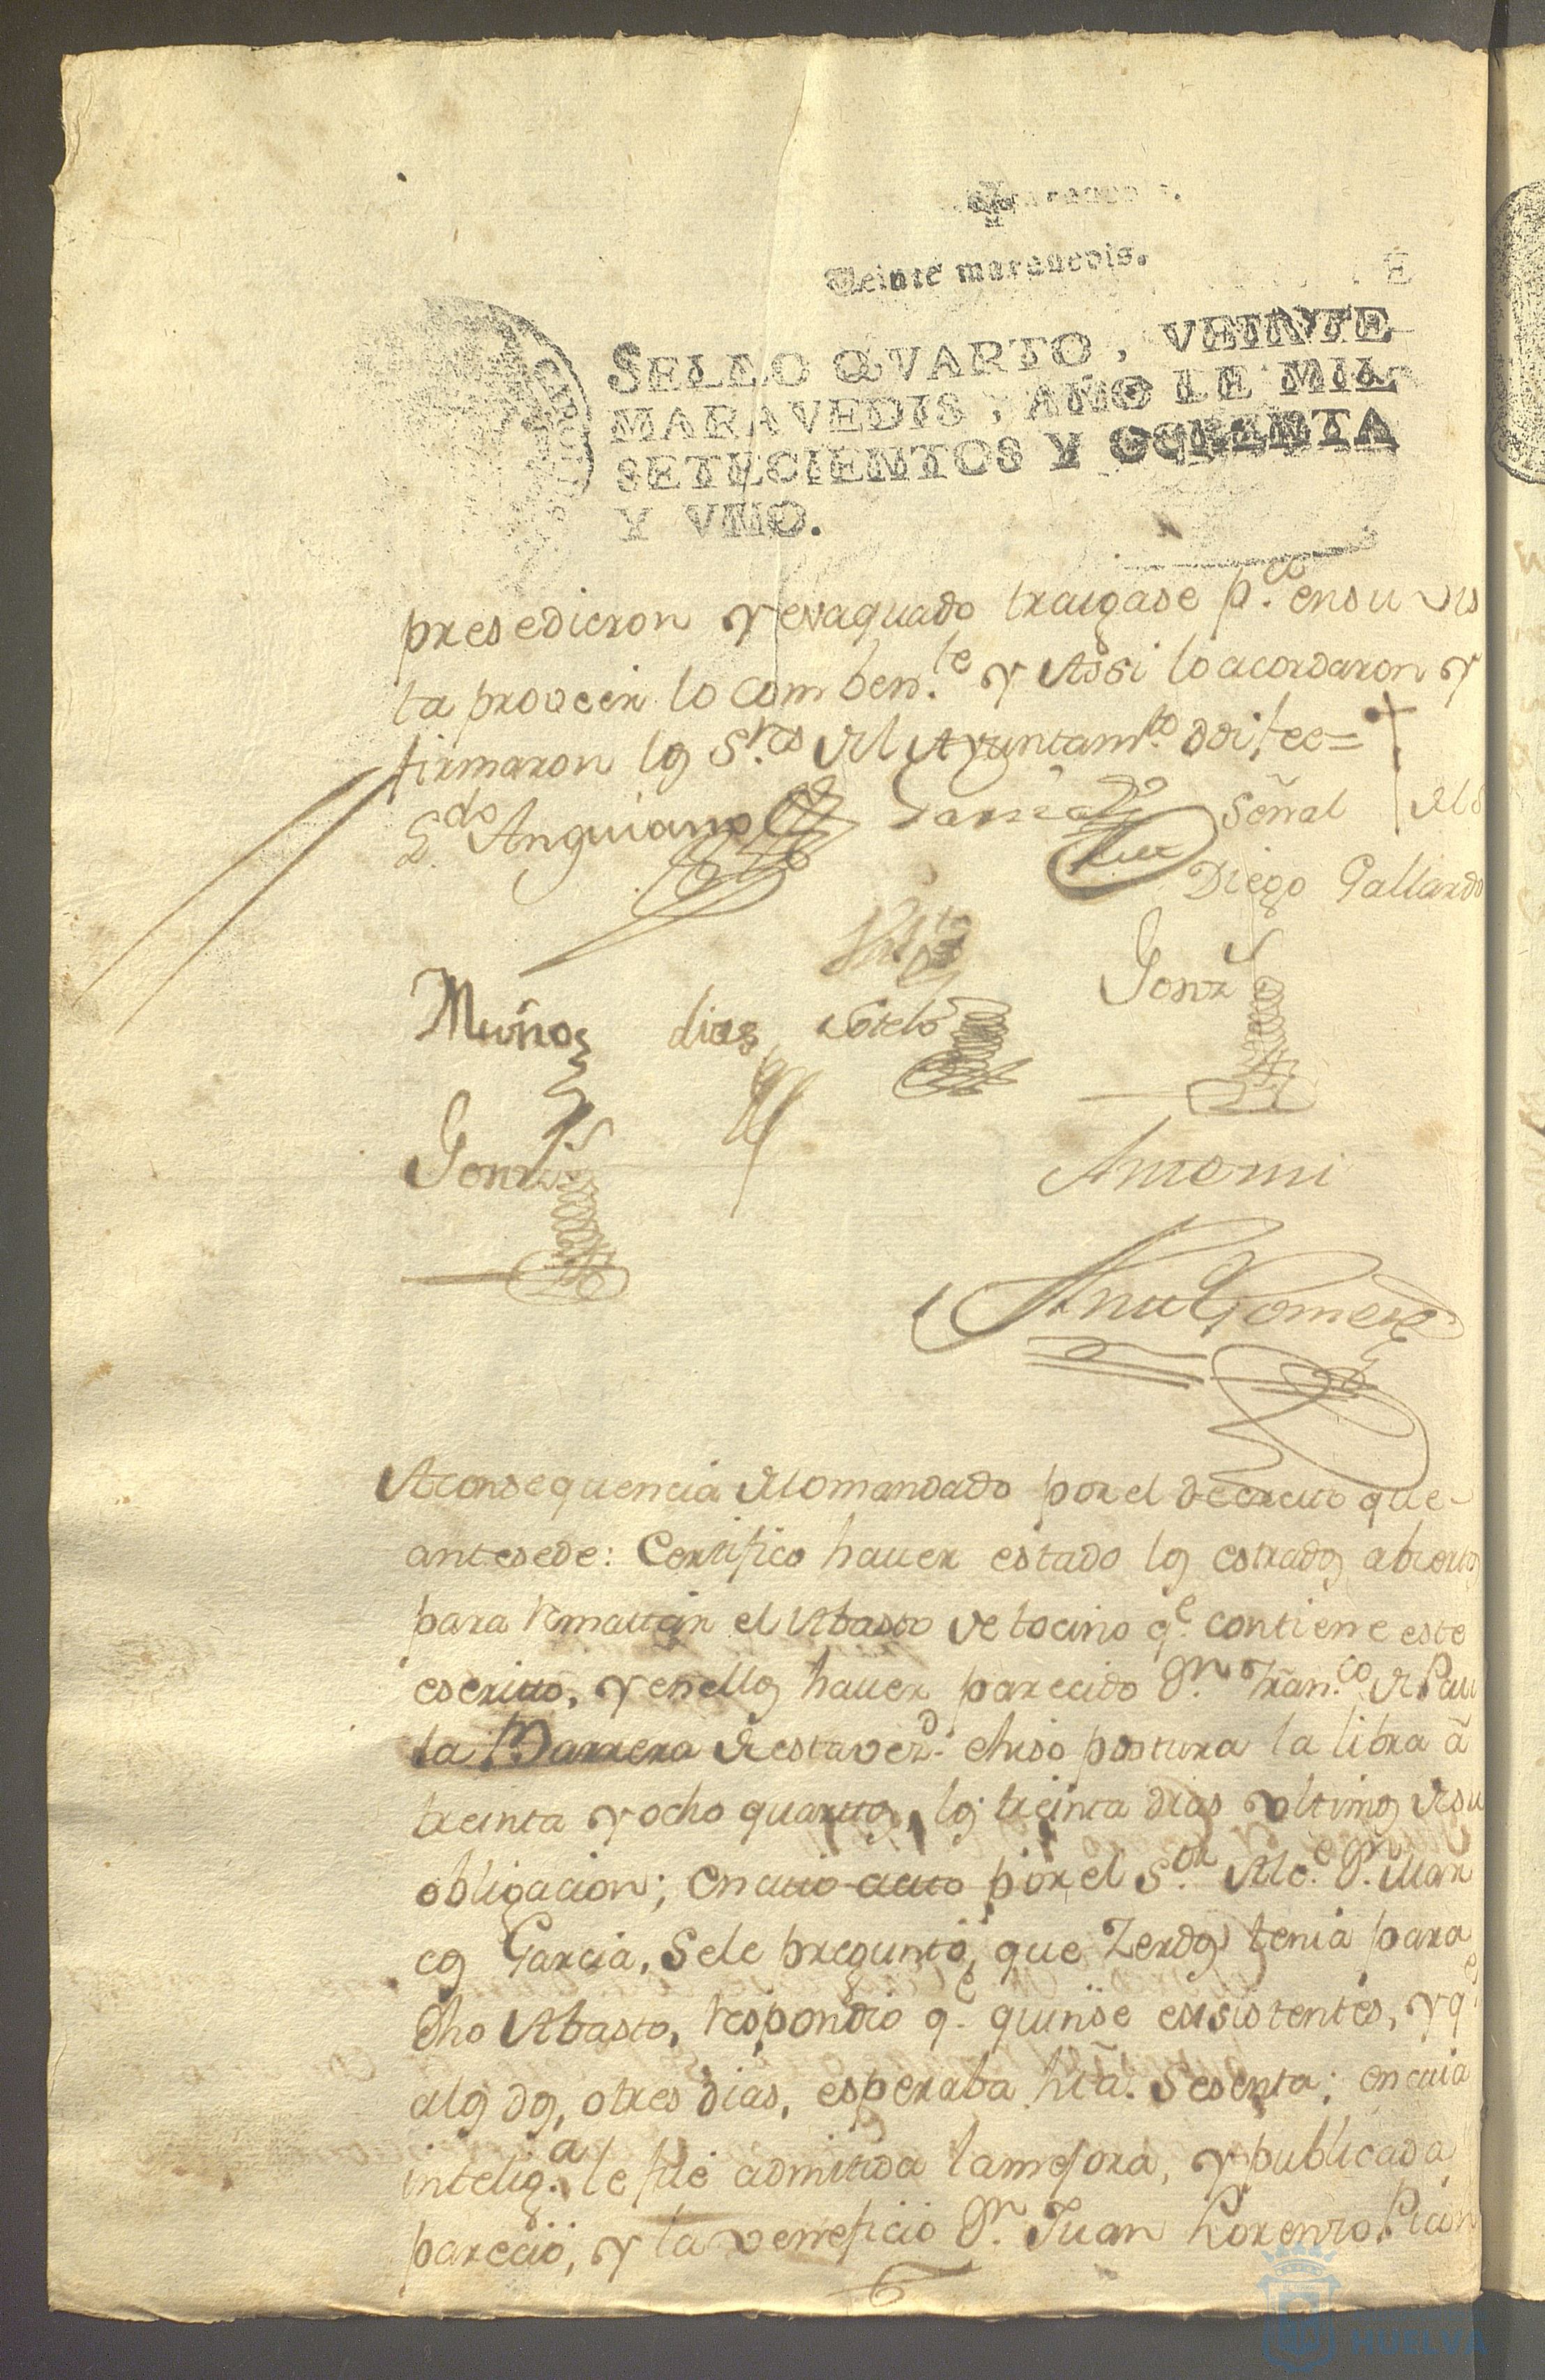 Veinte marauedis.
SELLO QVARTO, VEINTE
MARAVEDIS, AÑO DE MIL
SETECIENTOS Y OCHENTA
Y VNO.
presedieron y evaquado traigase p.ª en su vis
ta proveer lo comben.te y Assi lo acordaron y
firmaron los S.res del Ayuntam.to doi fee =
L.do Anguiano Garcia Señal + del S
Diego Gallardo
Muñoz dias Sotelo Gonz.s
Gonz.s
Antemi
Gomez
A consequencia delo mandado por el decreto que
antesede: Certifico hauer estado los estrados abiertos
para rematar el Abasto de tocino q.e contiene este
escrito, y en ellos hauer parecido D.n Fran.co de Pau
la Barrera de esta vez.d ehiso postura la libra â
treinta y ocho quartos, los treinta dias vltimos de su
obligacion; en cuio acto por el S.or Alc.e D.n Mar
cos Garcia, se le preguntó, que Zerdos tenia para
dho Abasto, respondio q.e quinse essistentes, y q.e
alos dos, o tres dias, esperaba hta. sesenta; en cuia
intelig.a le fué admitida la mejora, y publicada
pareció, y la veneficio D.n Juan Lorenzo Picon
HUELVA